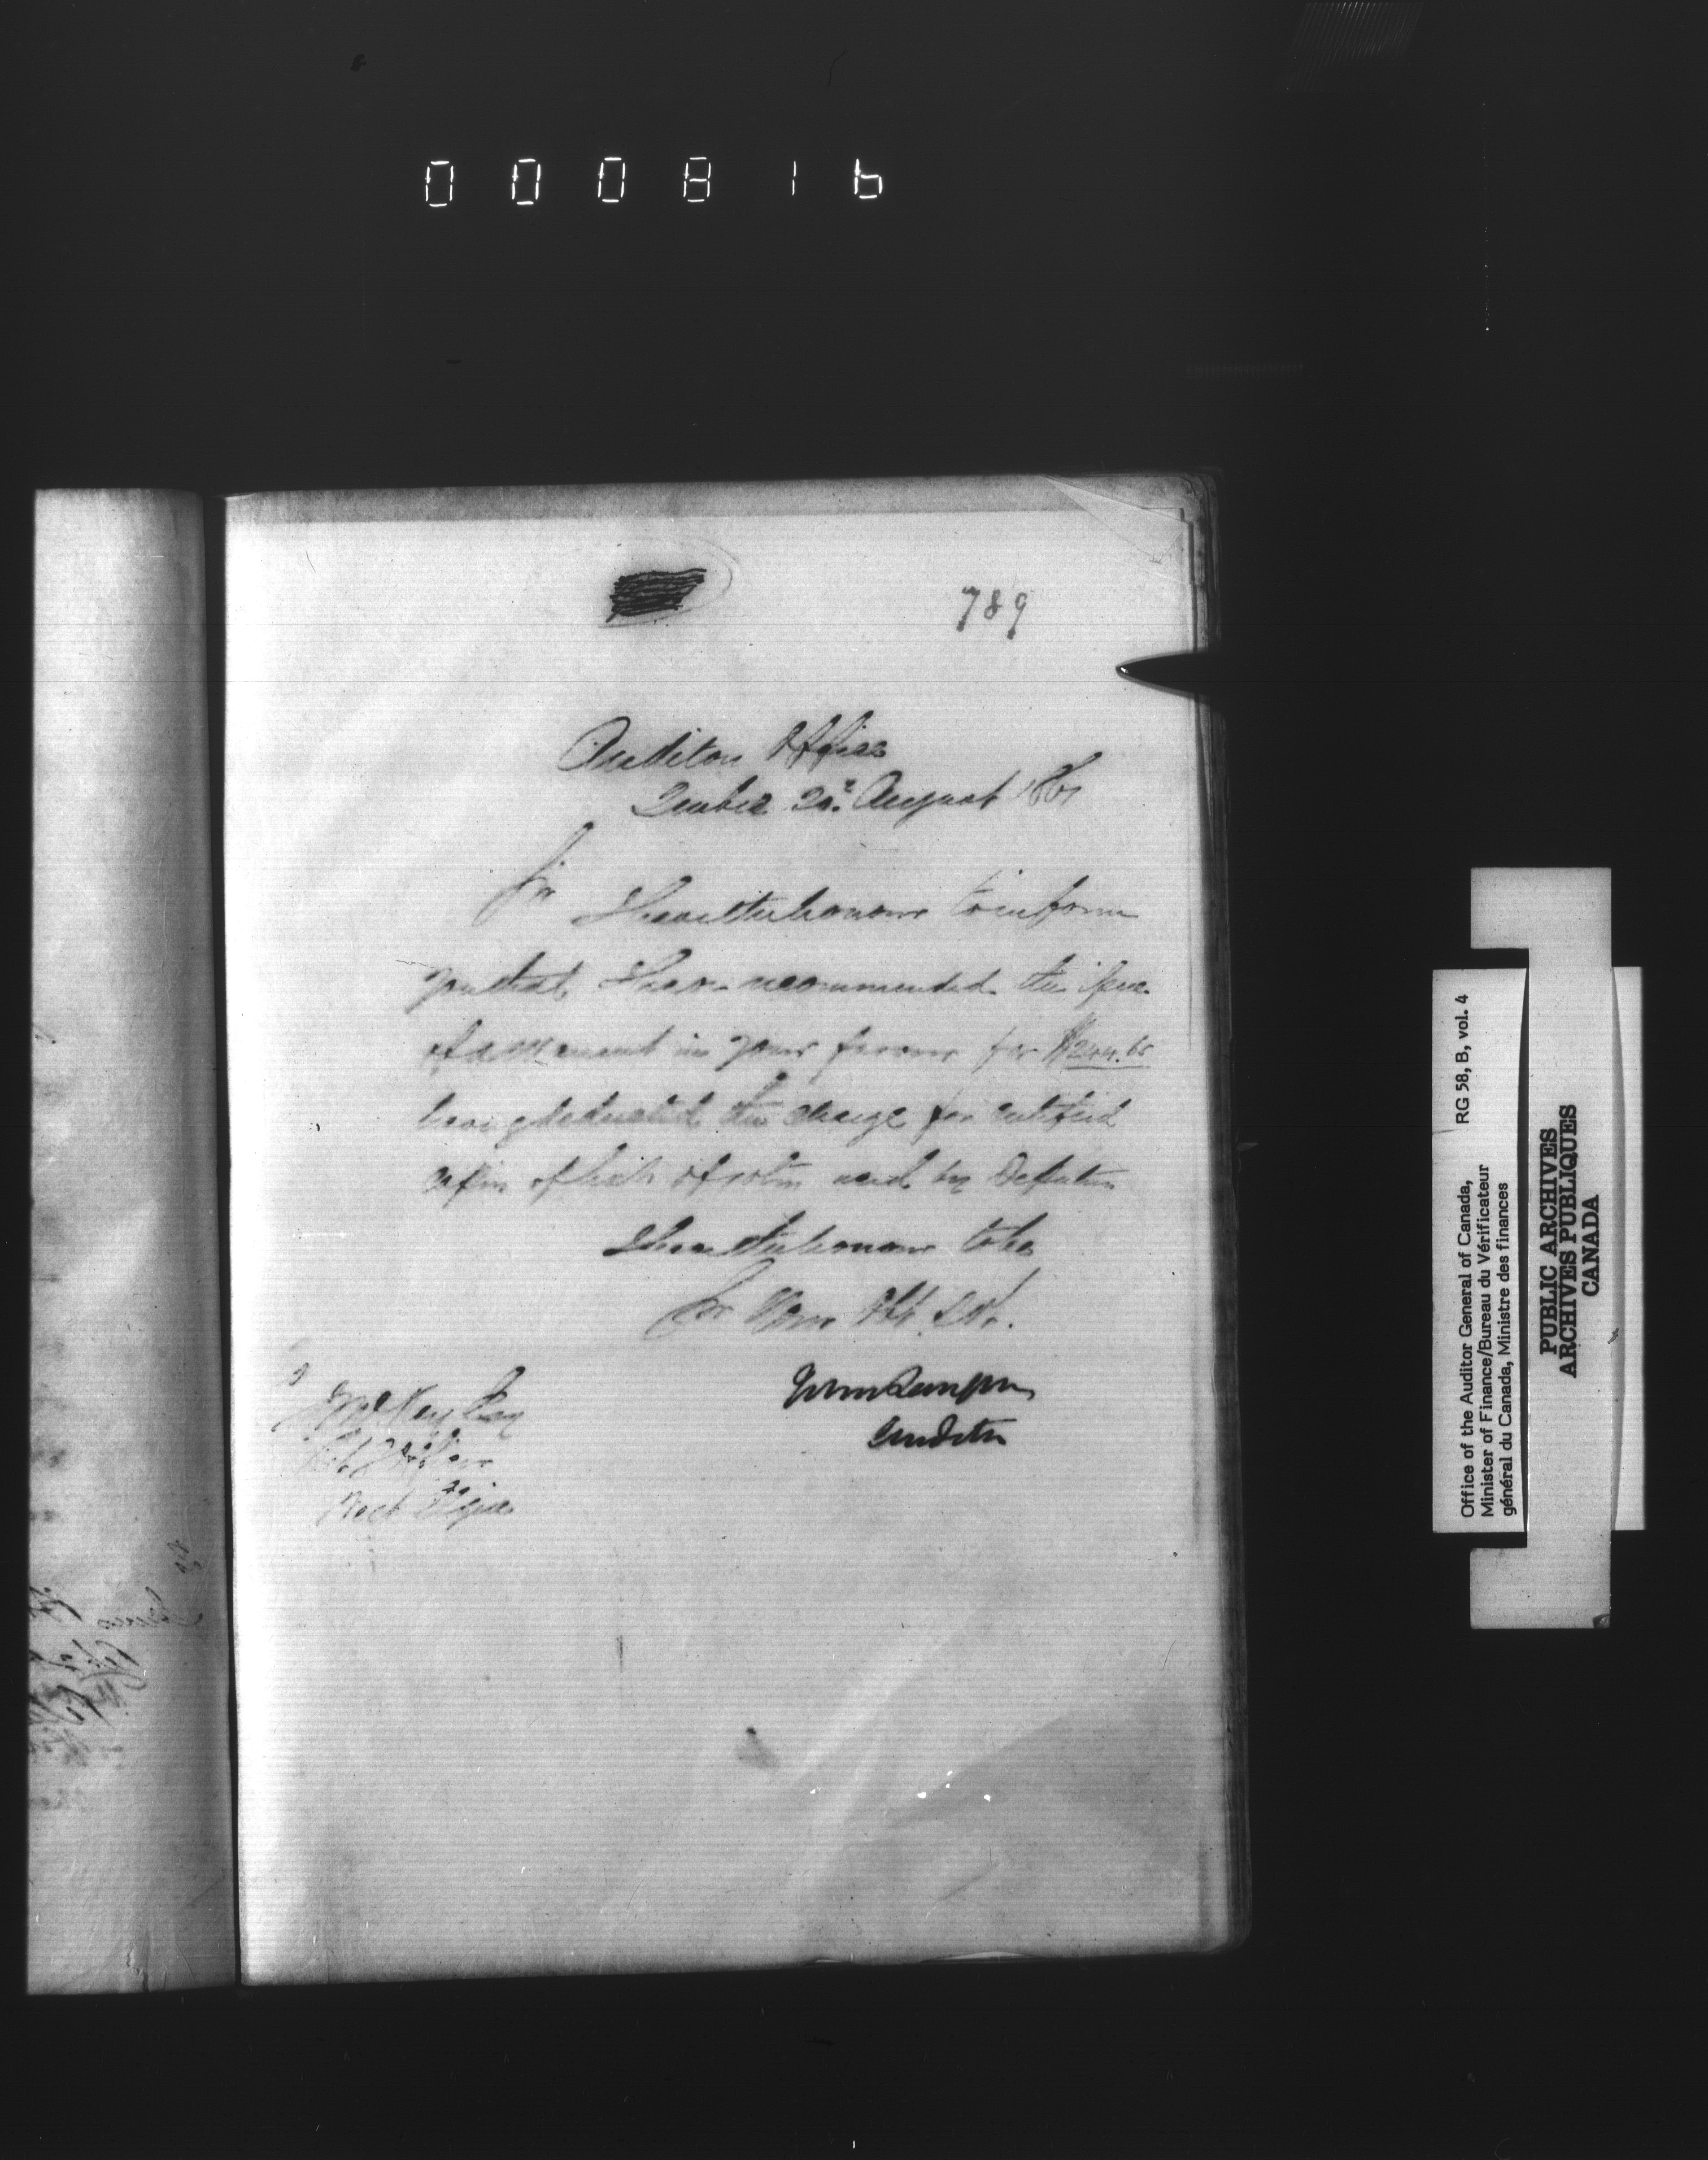 000816
789
Auditor Office
Quebec 20th August 1861
Sir
I have the honour to inform
you that I have recommended the issue
of a Warrant in your favour for $244.65
having deducted the charge for certified
copies of lists of voters used by Deputies
I have the honour to be
Sir Your Obt. St.
Auditor
McKay Esq
Retg Officer
West Elgin
Office of the Auditor General of Canada,
Minister of Finance/Bureau du Vérificateur
général du Canada, Ministre des finances
RG 58, B, vol. 4
PUBLIC ARCHIVES
ARCHIVES PUBLIQUES
CANADA